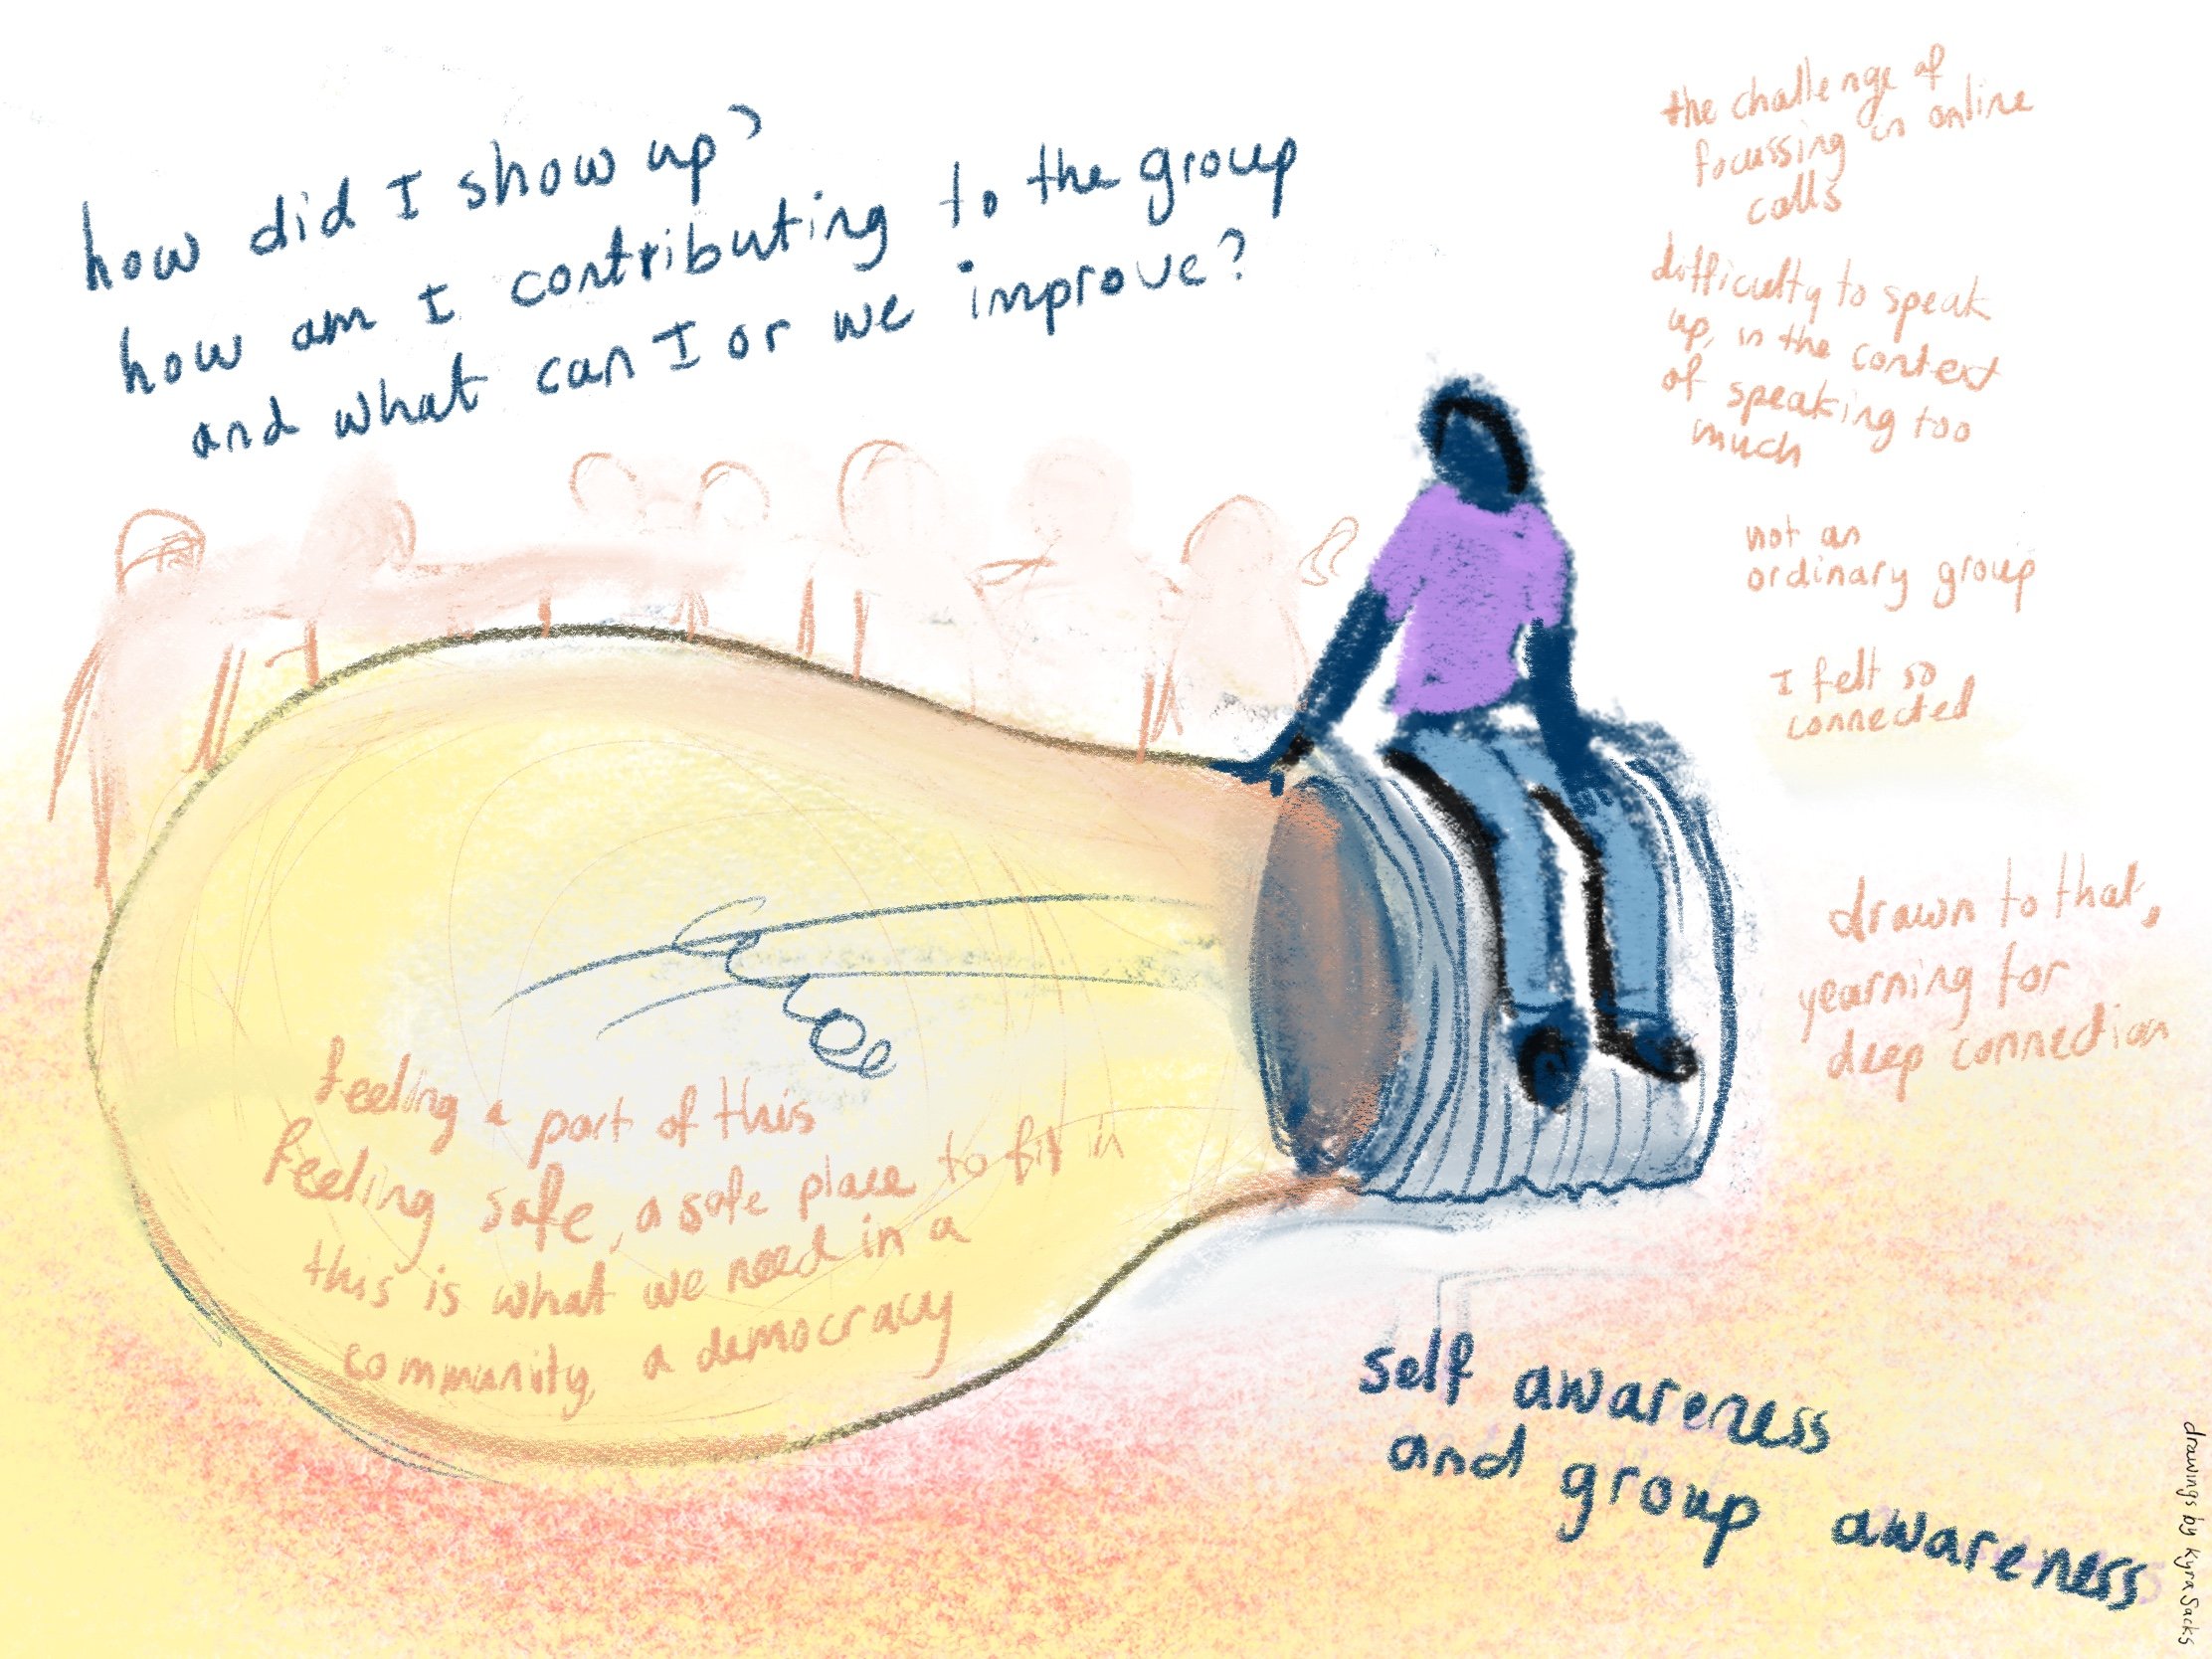 how did I show up?
how am I contributing to the group
and what can I or we improve?
the challenge of
focussing in online
calls
difficulty to speak
up, in the context
of speaking too
much
not an
ordinary group
I felt so
connected
drawn to that,
yearning for
deep connection
feeling a part of this
feeling safe, a safe place to fit in
this is what we need in a
community, a democracy
self awareness
and group awareness
drawings by Kyra Sacks